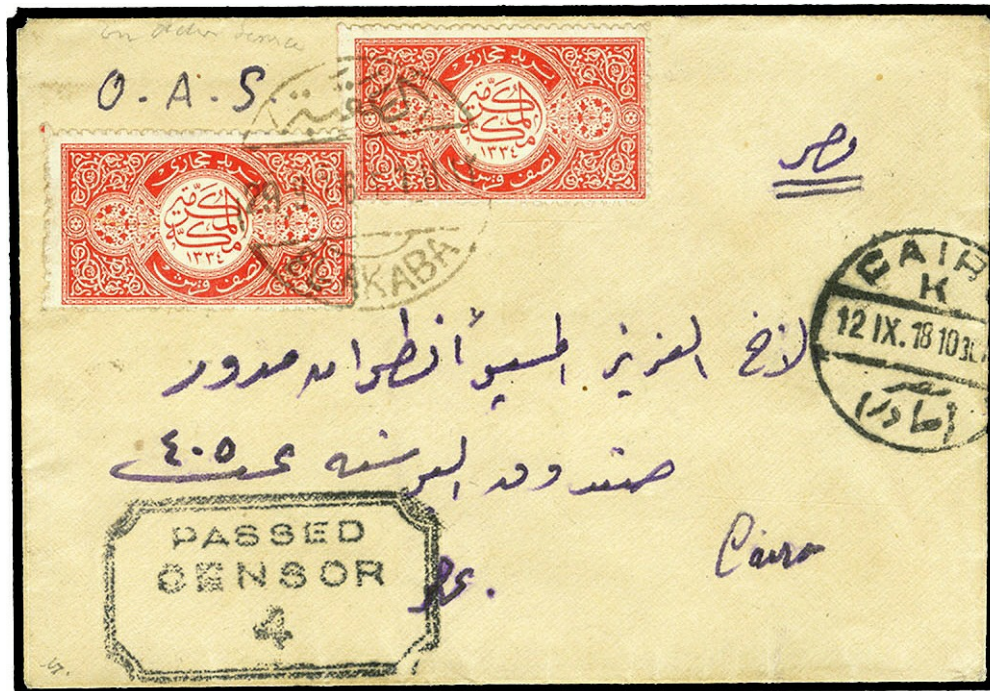 on active service
O. A. S.
بريد حجازى
مكة المكرمة
١٣٣٤
نصف قرش
بريد حجازى
مكة المكرمة
١٣٣٤
نصف قرش
العقبة
EL AKABA
مصر
CAIR
K
12 IX. 18 10
مصر
لاخ العزيز المسيو أنطوان مدور
صندوق البوسته عدد ٤٠٥
PASSED
CENSOR
4
Cairo